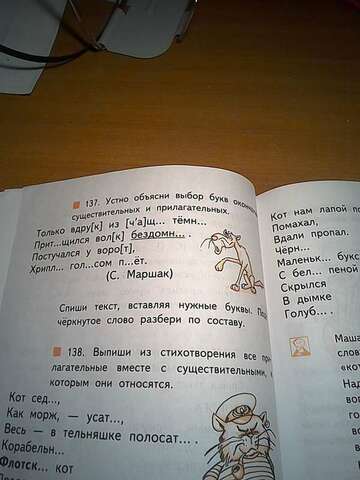 137. Устно объясни выбор букв
существительных и прилагательных.
Только вдру[к] из [ч'а]щ... тёмн...
Прит...щился вол[к] бездомн... .
Постучался у воро[т],
Хрипл... гол...сом п...ёт.
(С. Маршак)
Спиши текст, вставляя нужные буквы.
чёркнутое слово разбери по составу.
138. Выпиши из стихотворения все
лагательные вместе с существительными,
которым они относятся.
Кот сед...,
Как морж, — усат...,
Весь — в тельняшке полосат... .
Корабельн...
Флотск... кот
Кот нам лапой
Помахал,
Вдали пропал.
Чёрн...
Маленьк... букс
С бел... пеной
Скрылся
В дымке
Голуб... .
Маша
слов
«кот